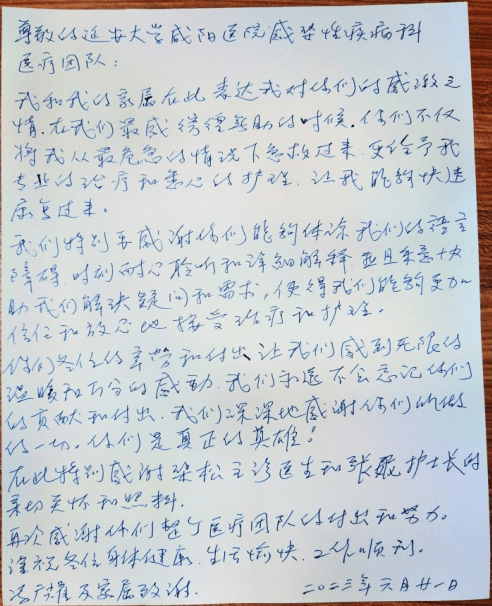 尊敬的延安大学咸阳医院感染性疾病科
医疗团队：
我和我的家属在此表达我对你们的感激之
情。在我们最感徬徨無助的时候，你们不仅
将我从最危急的情况下急救过来，更给予我
专业的治疗和悉心的护理，让我能夠快速
康复过来。
我们特别要感谢你们能夠体谅我们的語言
障碍，时刻耐心聆听和详細解释，並且乐意协
助我们解决疑问和需求，使得我们能夠更加
信任和放心地接受治疗和护理。
你们各位的辛勞和付出让我们感到无限的
温暖和万分的感动，我们永远不会忘记你们
的贡献和付出，我们深深地感谢你们所做
的一切。你们是真正的英雄！
在此特别感谢梁松主诊医生和张 护士长的
亲切关怀和照料。
再次感谢你们整个医疗团队的付出和努力。
谨祝各位身体健康，生活愉快，工作顺利。
冯 耀及家属致谢。
二〇二三年 月廿一日